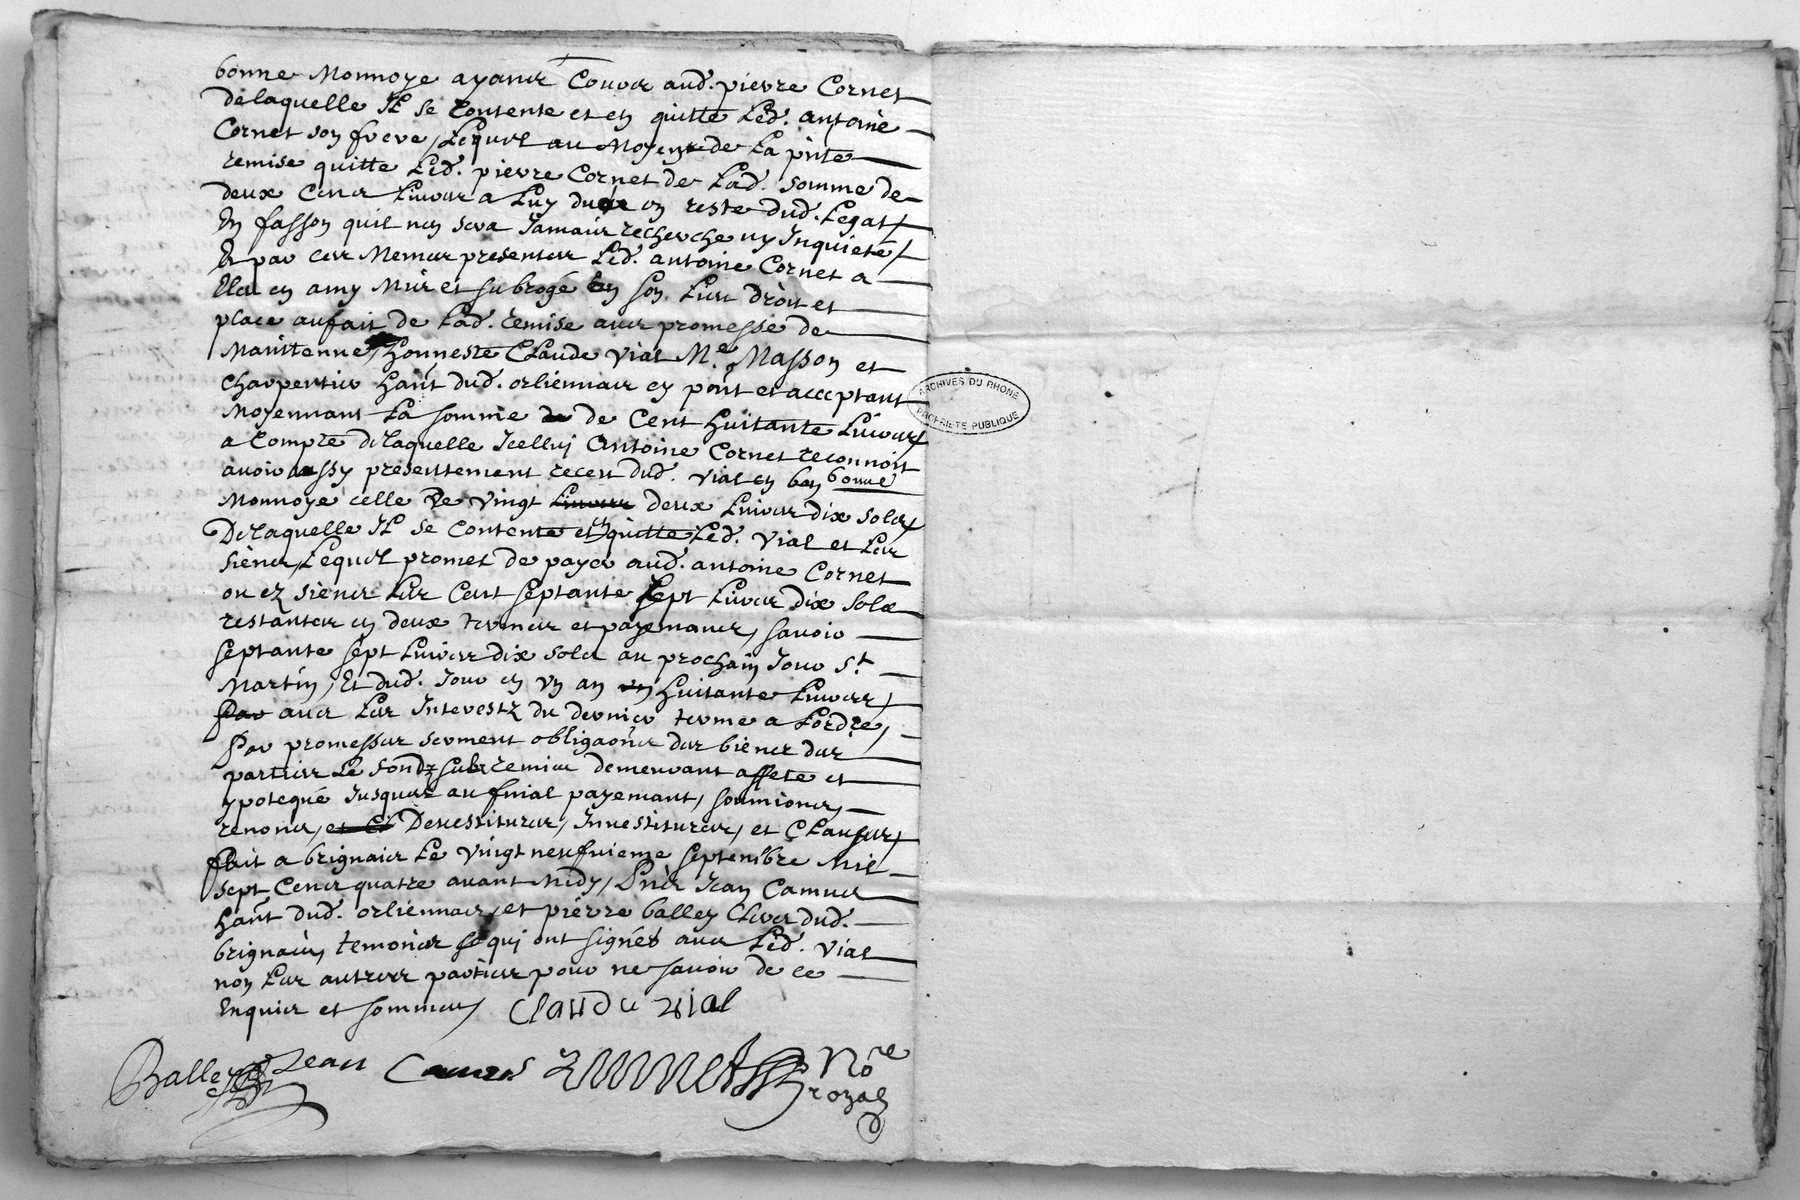 bonne Monnoye ayant Cours aud. pierre Cornet
de laquelle Il se Contente et en quitte Led. antoine
Cornet son frere, Lequel au Moyen de La pñte
remise quitte Led. pierre Cornet de Lad. somme de
deux Cens Livres a Luy deue en reste dud. Legat,
En fasson quil nen sera Jamais recherche ny Inquieté,
Et par ces Memes presentes Led. antoine Cornet a
Eleu en amy Mis et subrogé En son Lieu droit et
place au fait de Lad. remise avec promesse de
Maintenue, Honneste Claude Vial Me. Masson et
Charpentier Hañt dud. orliennas cy pñt et acceptant
Moyennant La somme de Cent Huitante Livres
a Compte de laquelle Icelluy Antoine Cornet reconnoit
avoir aussy presentement receu dud. Vial en bon bonne
Monnoye celle De Vingt Livres deux Livres dix sols,
De laquelle Il se Contente et en quitte Led. Vial et Les
siens, Lequel promet de payer aud. antoine Cornet
ou ez siens Les Cent septante sept Livres dix sols
restantes en deux termes et payemans, savoir
septante sept Livres dix sols au prochain Jour St.
Martin, Et dud. Jour en Vn an Huitante Livres,
Par avec Les Interestz du dernier terme a Lordre,
Par promesses serment obligaõns des biens des
parties Le fondz sub remis demeurant affeté et
ypotequé Jusques au finial payemant, soumions,
renons, et Cl Devestitures, Investitures, et Clauses,
Fait a brignais Le Vingt neufvieme septembre Mil
sept Cens quatre avant Midy, Pñs Jean Camus
Hañt dud. orliennas, et pierre balley Clerc dud.
brignais, temoins qui ont signés avec Led. Vial
non Les autres parties pour ne savoir de ce
Enquis et sommes,
Claude vial
Balley Jean Camus Nore
royal
ARCHIVES DU RHONE
PROPRIETE PUBLIQUE